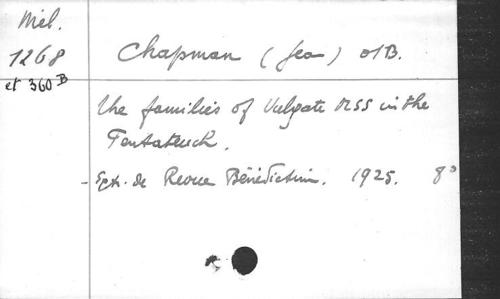 Mél.
1268
et 360 B
Chapman (Jea) OSB.
The families of Vulgate MSS in the
Pentateuch.
- Extr. de Revue Bénédictine. 1925. 8°